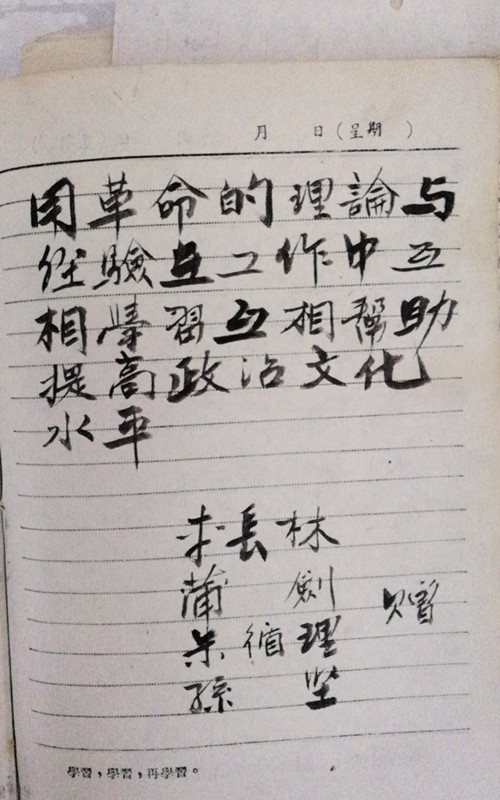 月 日(星期 )
用革命的理論与
经驗在工作中互
相學習互相幫助
提高政治文化
水平
李長林
蒲 劍
朱循理 赠
孫 坚
學習,學習,再學習。